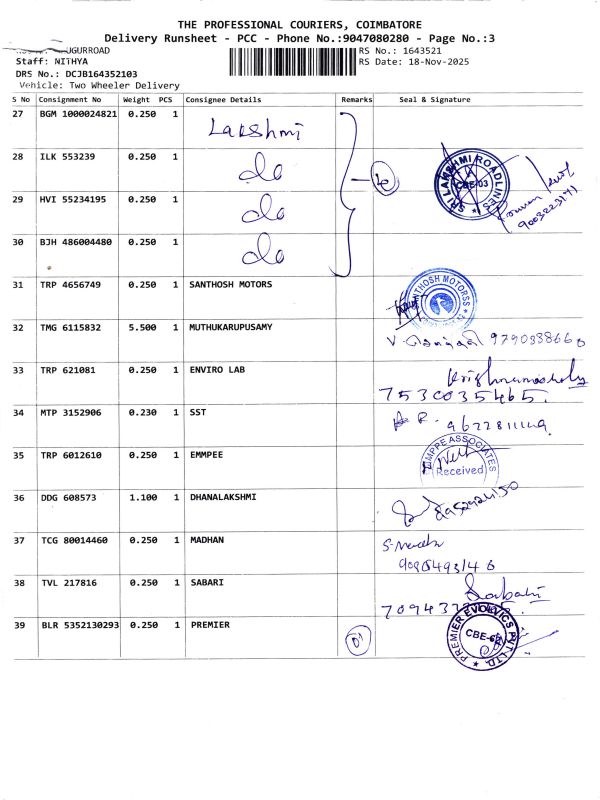 THE PROFESSIONAL COURIERS, COIMBATORE
Delivery Runsheet - PCC - Phone No.:9047080280 - Page No.:3
UGURROAD
RS No.: 1643521
Staff: NITHYA
RS Date: 18-Nov-2025
DRS No.: DCJB164352103
Vehicle: Two Wheeler Delivery
S No Consignment No Weight PCS Consignee Details Remarks Seal & Signature
27 BGM 1000024821 0.250 1 Lakshmi
28 ILK 553239 0.250 1 do
SRI LAKSHMI ROADLINES
CBE-03
29 HVI 55234195 0.250 1 do
30 BJH 486004480 0.250 1 do
31 TRP 4656749 0.250 1 SANTHOSH MOTORS
32 TMG 6115832 5.500 1 MUTHUKARUPUSAMY
33 TRP 621081 0.250 1 ENVIRO LAB
7530035465.
34 MTP 3152906 0.230 1 SST
35 TRP 6012610 0.250 1 EMMPEE
ASSOCIATES
Received
36 DDG 608573 1.100 1 DHANALAKSHMI
37 TCG 80014460 0.250 1 MADHAN
38 TVL 217816 0.250 1 SABARI
39 BLR 5352130293 0.250 1 PREMIER 01
PREMIER EVOLVICS PVT LTD.